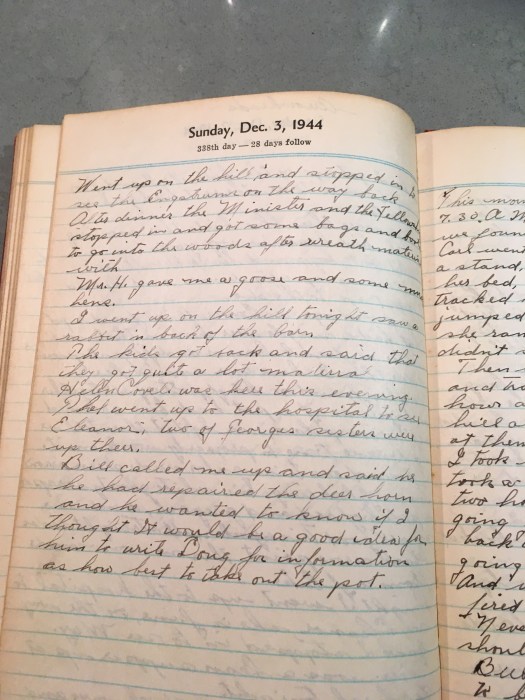 Sunday, Dec. 3, 1944
338th day — 28 days follow
Went up on the hill and stopped in to
see the on the way back
After dinner the Minister and the
stopped in and got some bags and
to go into the woods after wreath
with
Mr. H. gave me a goose and some
hens.
I went up on the hill tonight saw a
rabit in back of the barn
The kids got back and said that
they got quit a lot
Helen was here this evening.
went up to the hospital to see
Eleanor, two of Georges sisters were
up theer.
Bill called me up and said
he had repaired the deer horn
and he wanted to know if I
thought it would be a good idea for
him to write Long for information
as how best to take out the pot.
This
7.30. A. M
we foun
Carl went
a stand,
her bed,
tracked
jumped
she ran
didn't
Then
and
how a
at them
I took
took a
two
going
back
going
And
fired
Neve
shoul